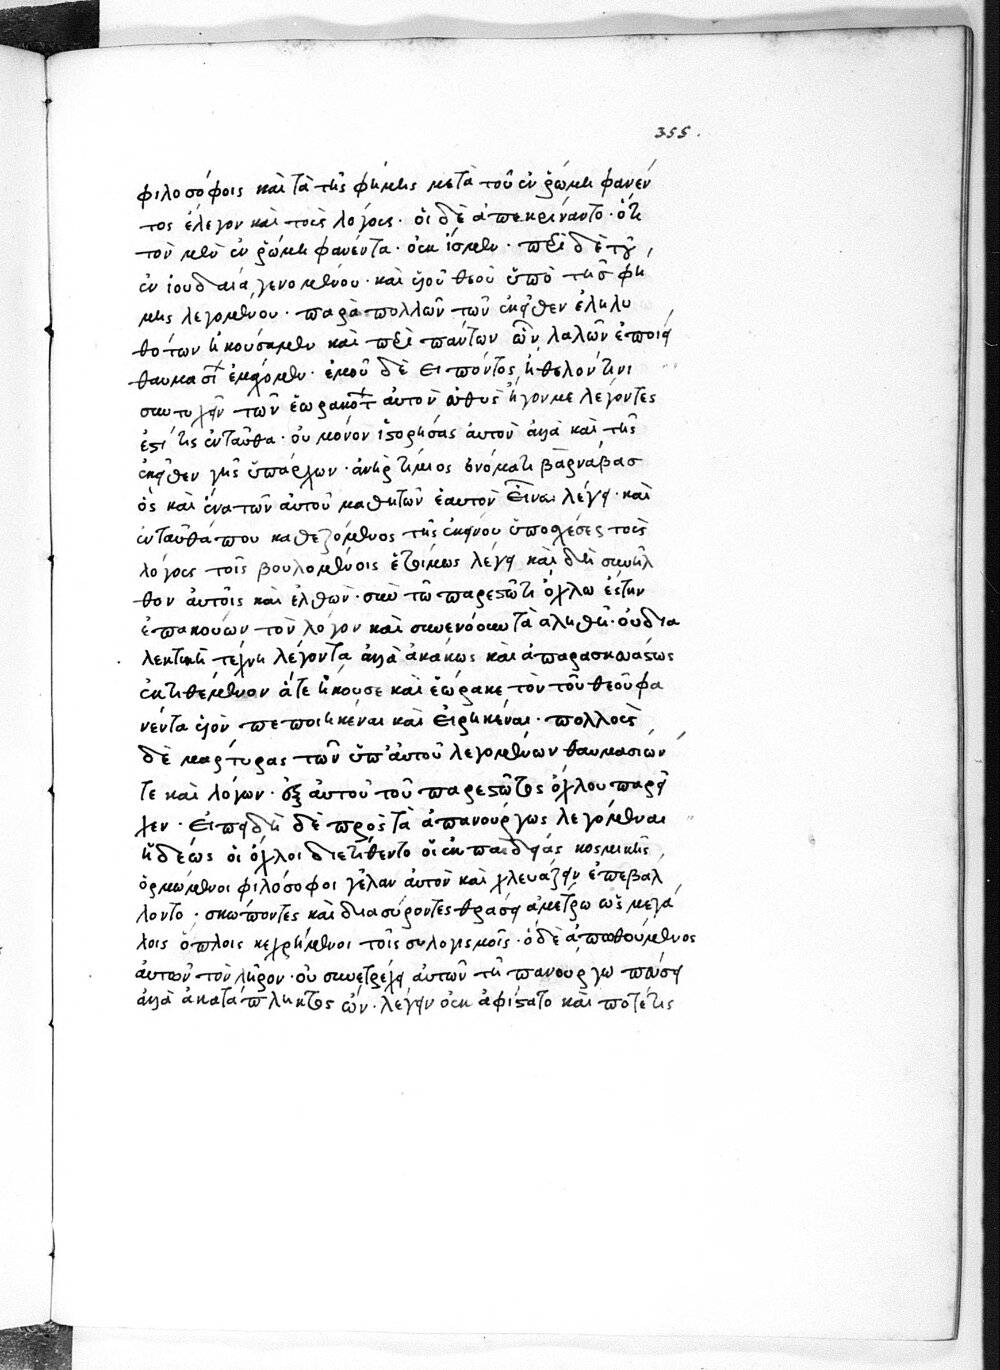 355.
φιλοσόφοις καὶ τὰ τῆς φήμης μετὰ τοῦ ἐν ῥώμη φανέν
τος ἔλεγον καὶ τοὺς λόγους· οἱ δὲ ἀπεκρίναντο· ὅτι
τὸν μὲν ἐν ῥώμη φανέντα· οὐκ ἴσμεν· περὶ δὲ τοῦ
ἐν ἰουδαία γενομένου· καὶ υἱοῦ θεοῦ ὑπὸ τῆς φή
μης λεγομένου· παρὰ πολλῶν τῶν ἐκεῖθεν ἐληλυ
θότων ἠκούσαμεν καὶ περὶ πάντων ὧν λαλῶν ἐποίει
θαυμασίων ἐμάθομεν· ἐμοῦ δὲ εἰπόντος, ἤθελον τινι
συντυχεῖν τῶν ἑωρακότων αὐτὸν εὐθὺς ἦγον με λέγοντες
ἔστι τις ἐνταῦθα· οὐ μόνον ἱστορήσας αὐτὸν ἀλλὰ καὶ τῆς
ἐκεῖθεν γῆς ὑπάρχων· ἀνὴρ τίμιος ὀνόματι βαρνάβας
ὃς καὶ ἕνα τῶν αὐτοῦ μαθητῶν ἑαυτὸν εἶναι λέγει· καὶ
ἐνταῦθά που καθεζόμενος τῆς ἐκείνου ὑποσχέσεως τοὺς
λόγους τοῖς βουλομένοις ἑτοίμως λέγει καὶ δὴ συνῆλ
θον αὐτοῖς καὶ ἐλθὼν· σὺν τῶ παρεστῶτι ὄχλω ἔστην
ἐπακούων τὸν λόγον καὶ συνενόουν τὰ ἀληθῆ· οὐ δια
λεκτικῆ τέχνη λέγοντα ἀλλὰ ἀκάκως καὶ ἀπαρασκευάστως
ἐκτιθέμενον ἅτε ἤκουσε καὶ ἑώρακε τὸν τοῦ θεοῦ φα
νέντα υἱὸν πεποιηκέναι καὶ εἰρηκέναι· πολλοὺς
δὲ μάρτυρας τῶν ὑπ' αὐτοῦ λεγομένων θαυμασίων
τε καὶ λόγων· ἐξ αὐτοῦ τοῦ παρεστῶτος ὄχλου παρεῖ
χεν· ἐπειδὴ δὲ πρὸς τὰ ἀπανούργως λεγόμενα
ἡδέως οἱ ὄχλοι διετίθεντο οἱ ἐκ παιδείας κοσμικῆς
ὁρμώμενοι φιλόσοφοι γελᾶν αὐτὸν καὶ χλευάζειν ἐπεβάλ
λοντο· σκώπτοντες καὶ διασύροντες θράσει ἀμέτρω ὡς μεγά
λοις ὅπλοις κεχρημένοι τοῖς συλογισμοῖς· ὁ δὲ ἀπωθούμενος
αὐτῶν τὸν λῆρον· οὐ συνέτρεχε αὐτῶν τῆ πανούργω πεύσει
ἀλλὰ ἀκαταπλήκτως ὧν· λέγειν οὐκ ἀφίστατο καὶ ποτέ τις